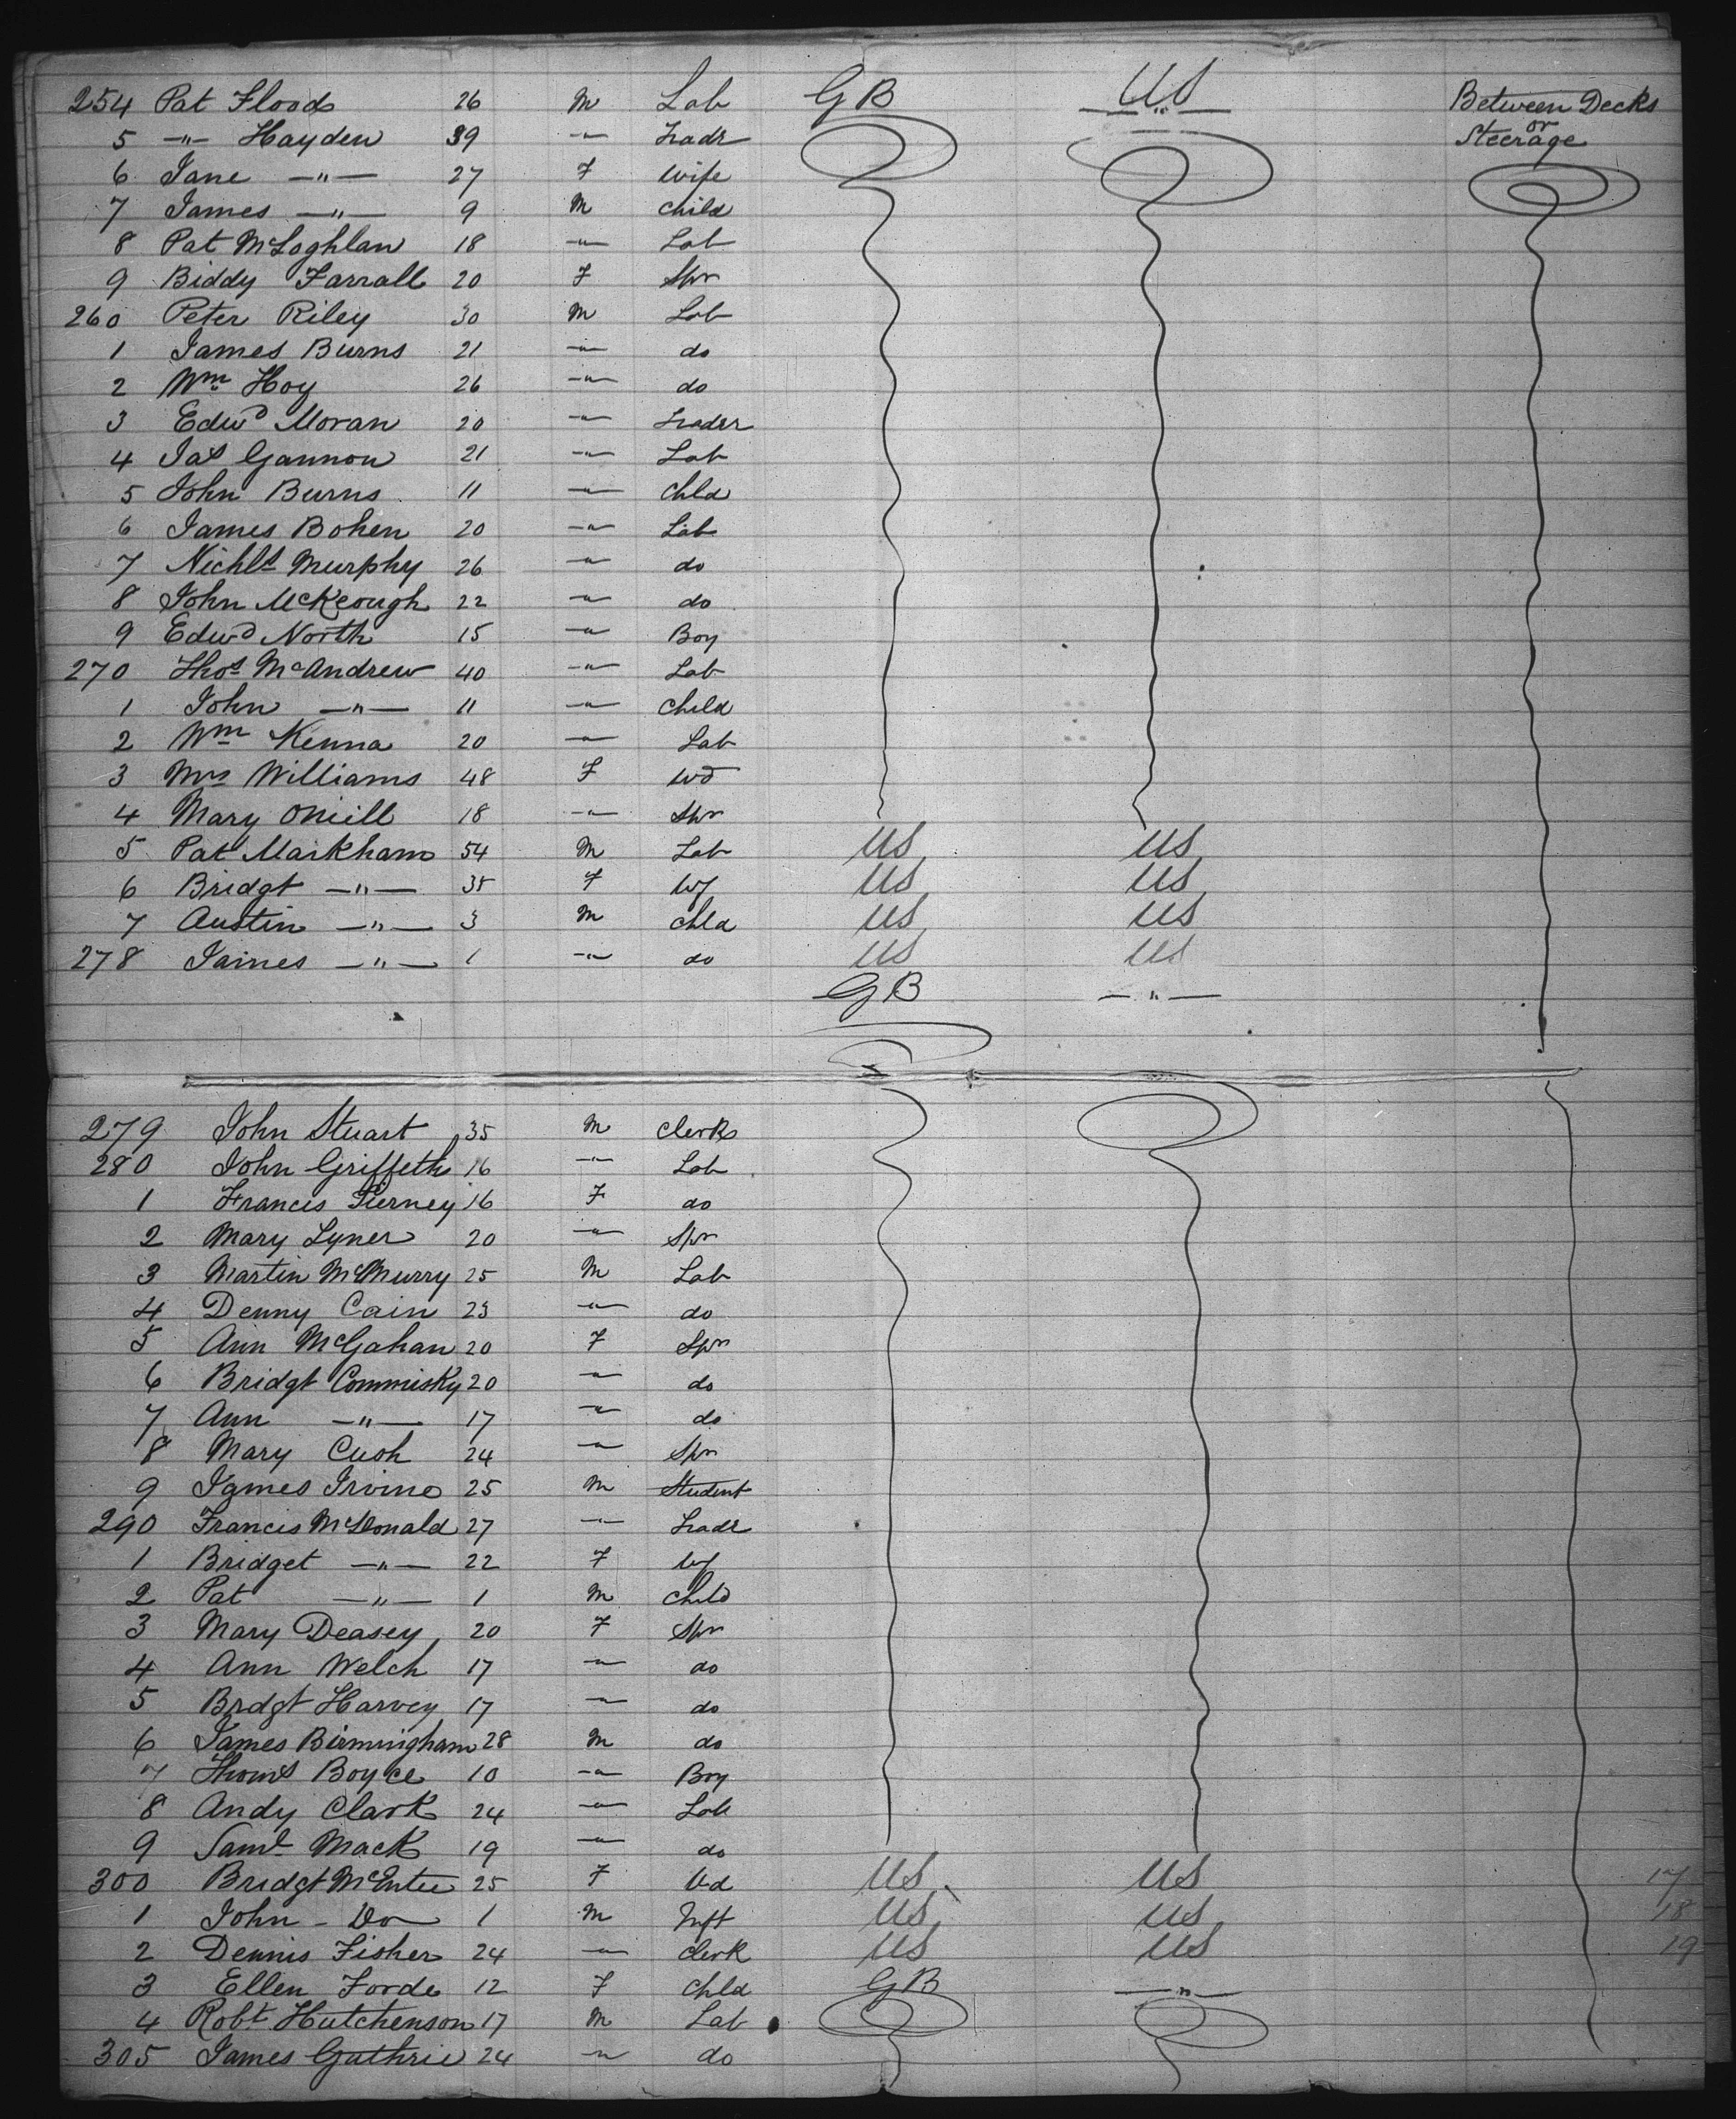 254 Pat Floods 26 M Lab GB US Between Decks
5 -"- Hayden 39 -"- Tradr or Steerage
6 Jane -"- 27 F Wife
7 James -"- 9 M Child
8 Pat McLoghlan 18 -"- Lab
9 Biddy Farrall 20 F Spr
260 Peter Riley 30 M Lab
1 James Burns 21 -"- do
2 Wm Hoy 26 -"- do
3 Edwd Moran 20 -"- Trader
4 Jas Gannon 21 -"- Lab
5 John Burns 11 -"- Chld
6 James Bohen 20 -"- Lab
7 Nichls Murphy 26 -"- do
8 John McKeough 22 -"- do
9 Edwd North 15 -"- Boy
270 Thos McAndrew 40 -"- Lab
1 John -"- 11 -"- Child
2 Wm Kenna 20 -"- Lab
3 Mrs Williams 48 F Wd
4 Mary ONeill 18 -"- Spr
5 Pat Markham 54 M Lab US US
6 Bridgt -"- 35 F Wf US US
7 Austin -"- 3 M Chld US US
278 James -"- 1 -"- do US US
GB -"-
279 John Stuart 35 M Clerk
280 John Griffeths 16 -"- Lab
1 Francis Tierney 16 F do
2 Mary Lyner 20 -"- Spr
3 Martin McMurry 25 M Lab
4 Denny Cain 23 -"- do
5 Ann McGahan 20 F Spr
6 Bridgt Commisky 20 -"- do
7 Ann -"- 17 -"- do
8 Mary Cush 24 -"- Spr
9 James Irvine 25 M Student
290 Francis McDonald 27 -"- Tradr
1 Bridget -"- 22 F Wf
2 Pat -"- 1 M Child
3 Mary Deasey 20 F Spr
4 Ann Welch 17 -"- do
5 Brdgt Harvey 17 -"- do
6 James Birmingham 28 M do
7 Thoms Boyce 10 -"- Boy
8 Andy Clark 24 -"- Lab
9 Saml Mack 19 -"- do
300 Bridgt McEntee 25 F Wd US US 17
1 John - Do 1 M Inft US US 18
2 Dennis Fisher 24 -"- Clerk US US 19
3 Ellen Forde 12 F Chld GB -"-
4 Robt Hutchenson 17 M Lab
305 James Guthrie 24 -"- do